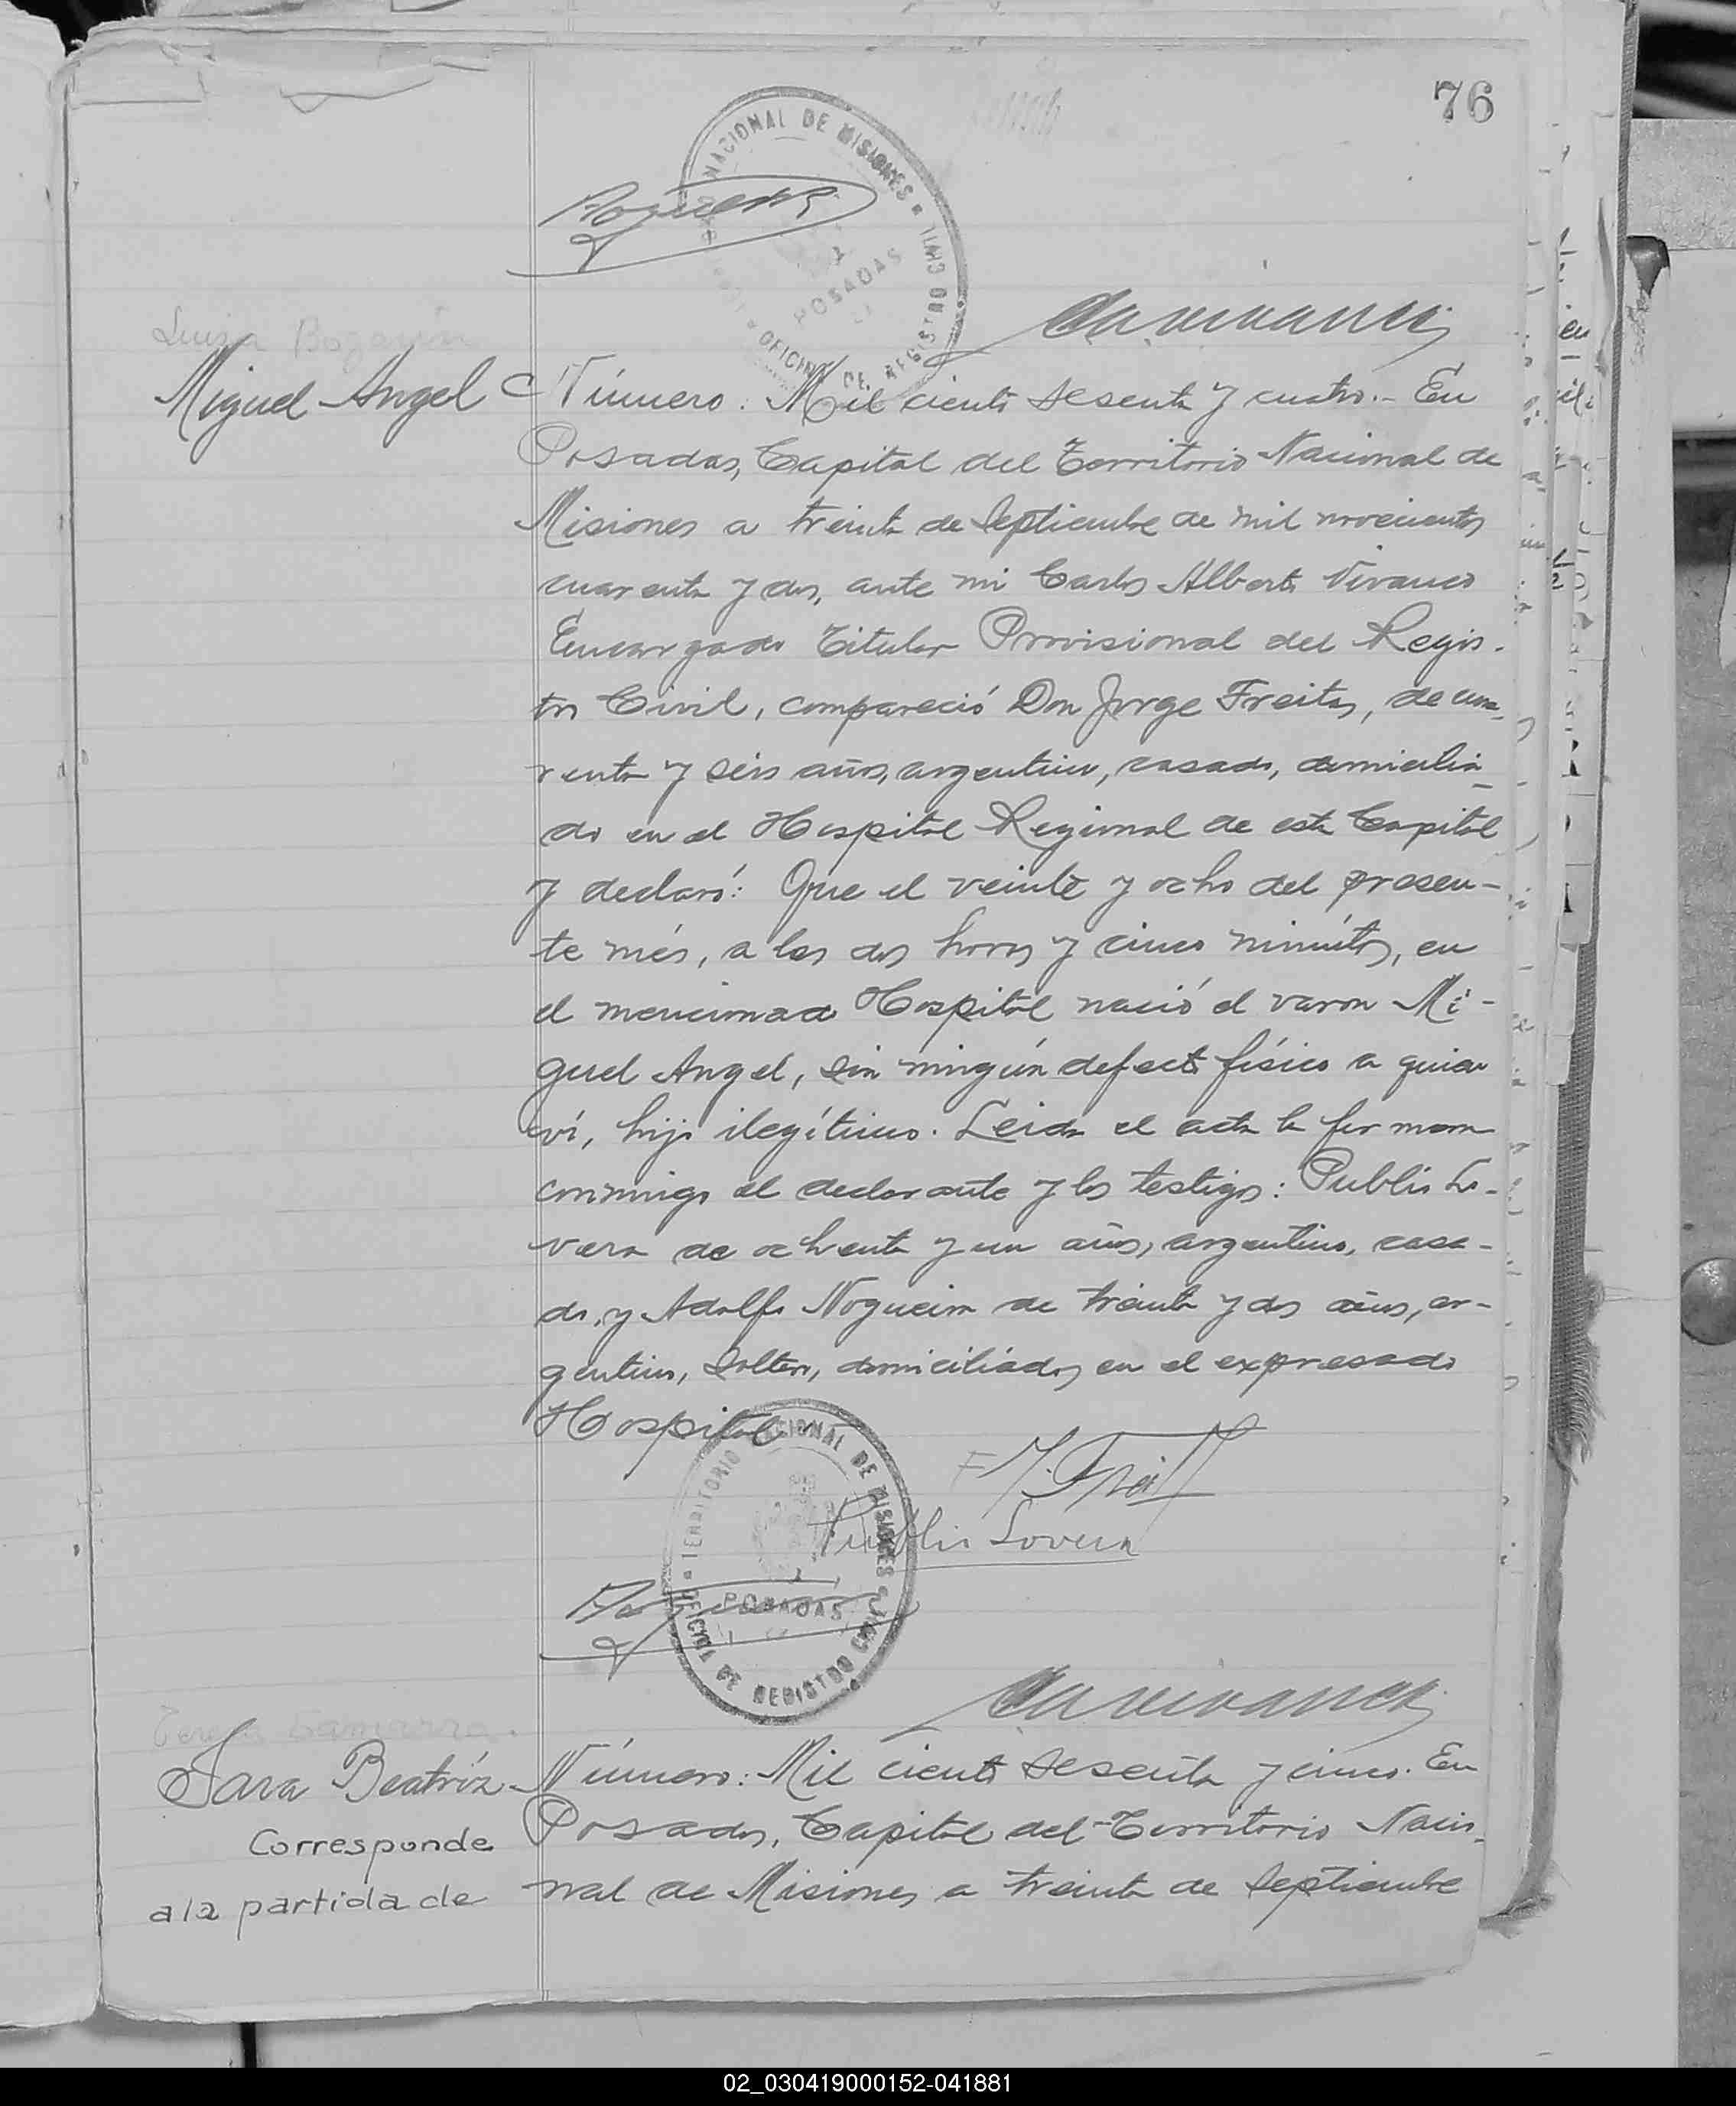 76
NACIONAL DE MISIONES
OFICINA DE REGISTRO CIVIL
POSADAS
Luisa
Miguel Angel
Número: Mil ciento sesenta y cuatro.- En
Posadas, Capital del Territorio Nacional de
Misiones a treinta de Septiembre de mil novecientos
cuarenta y dos, ante mi Carlos Alberto Vivanco
Encargado Titular Provisional del Regis-
tro Civil, compareció Don Jorge Freitas, de cua-
renta y seis años, argentino, casado, domicilia-
do en el Hospital Regional de esta Capital
y declaró: Que el veinte y ocho del presen-
te més, a las dos horas y cinco minútos, en
el mencionado Hospital nació el varon Mi-
guel Angel, sin ningún defecto físico a quien
ví, hijo ilegítimo. Leida el acta la firman
conmigo el declarante y los testigos: Publio Lo-
vera de ochenta y un años, argentino, casa-
do, y Adolfo Nogueira de treinta y dos años, ar-
gentino, soltero, domiciliados en el expresado
Hospital
J. Freit
Publio Lovera
TERRITORIO NACIONAL DE MISIONES
POSADAS
OFICINA DE REGISTRO CIVIL
Teresa Gamarra.
Sara Beatríz
Corresponde
a la partida de
Número: Mil ciento sesenta y cinco. En
Posadas, Capital del Territorio Nacio-
nal de Misiones a treinta de Septiembre
02_030419000152-041881